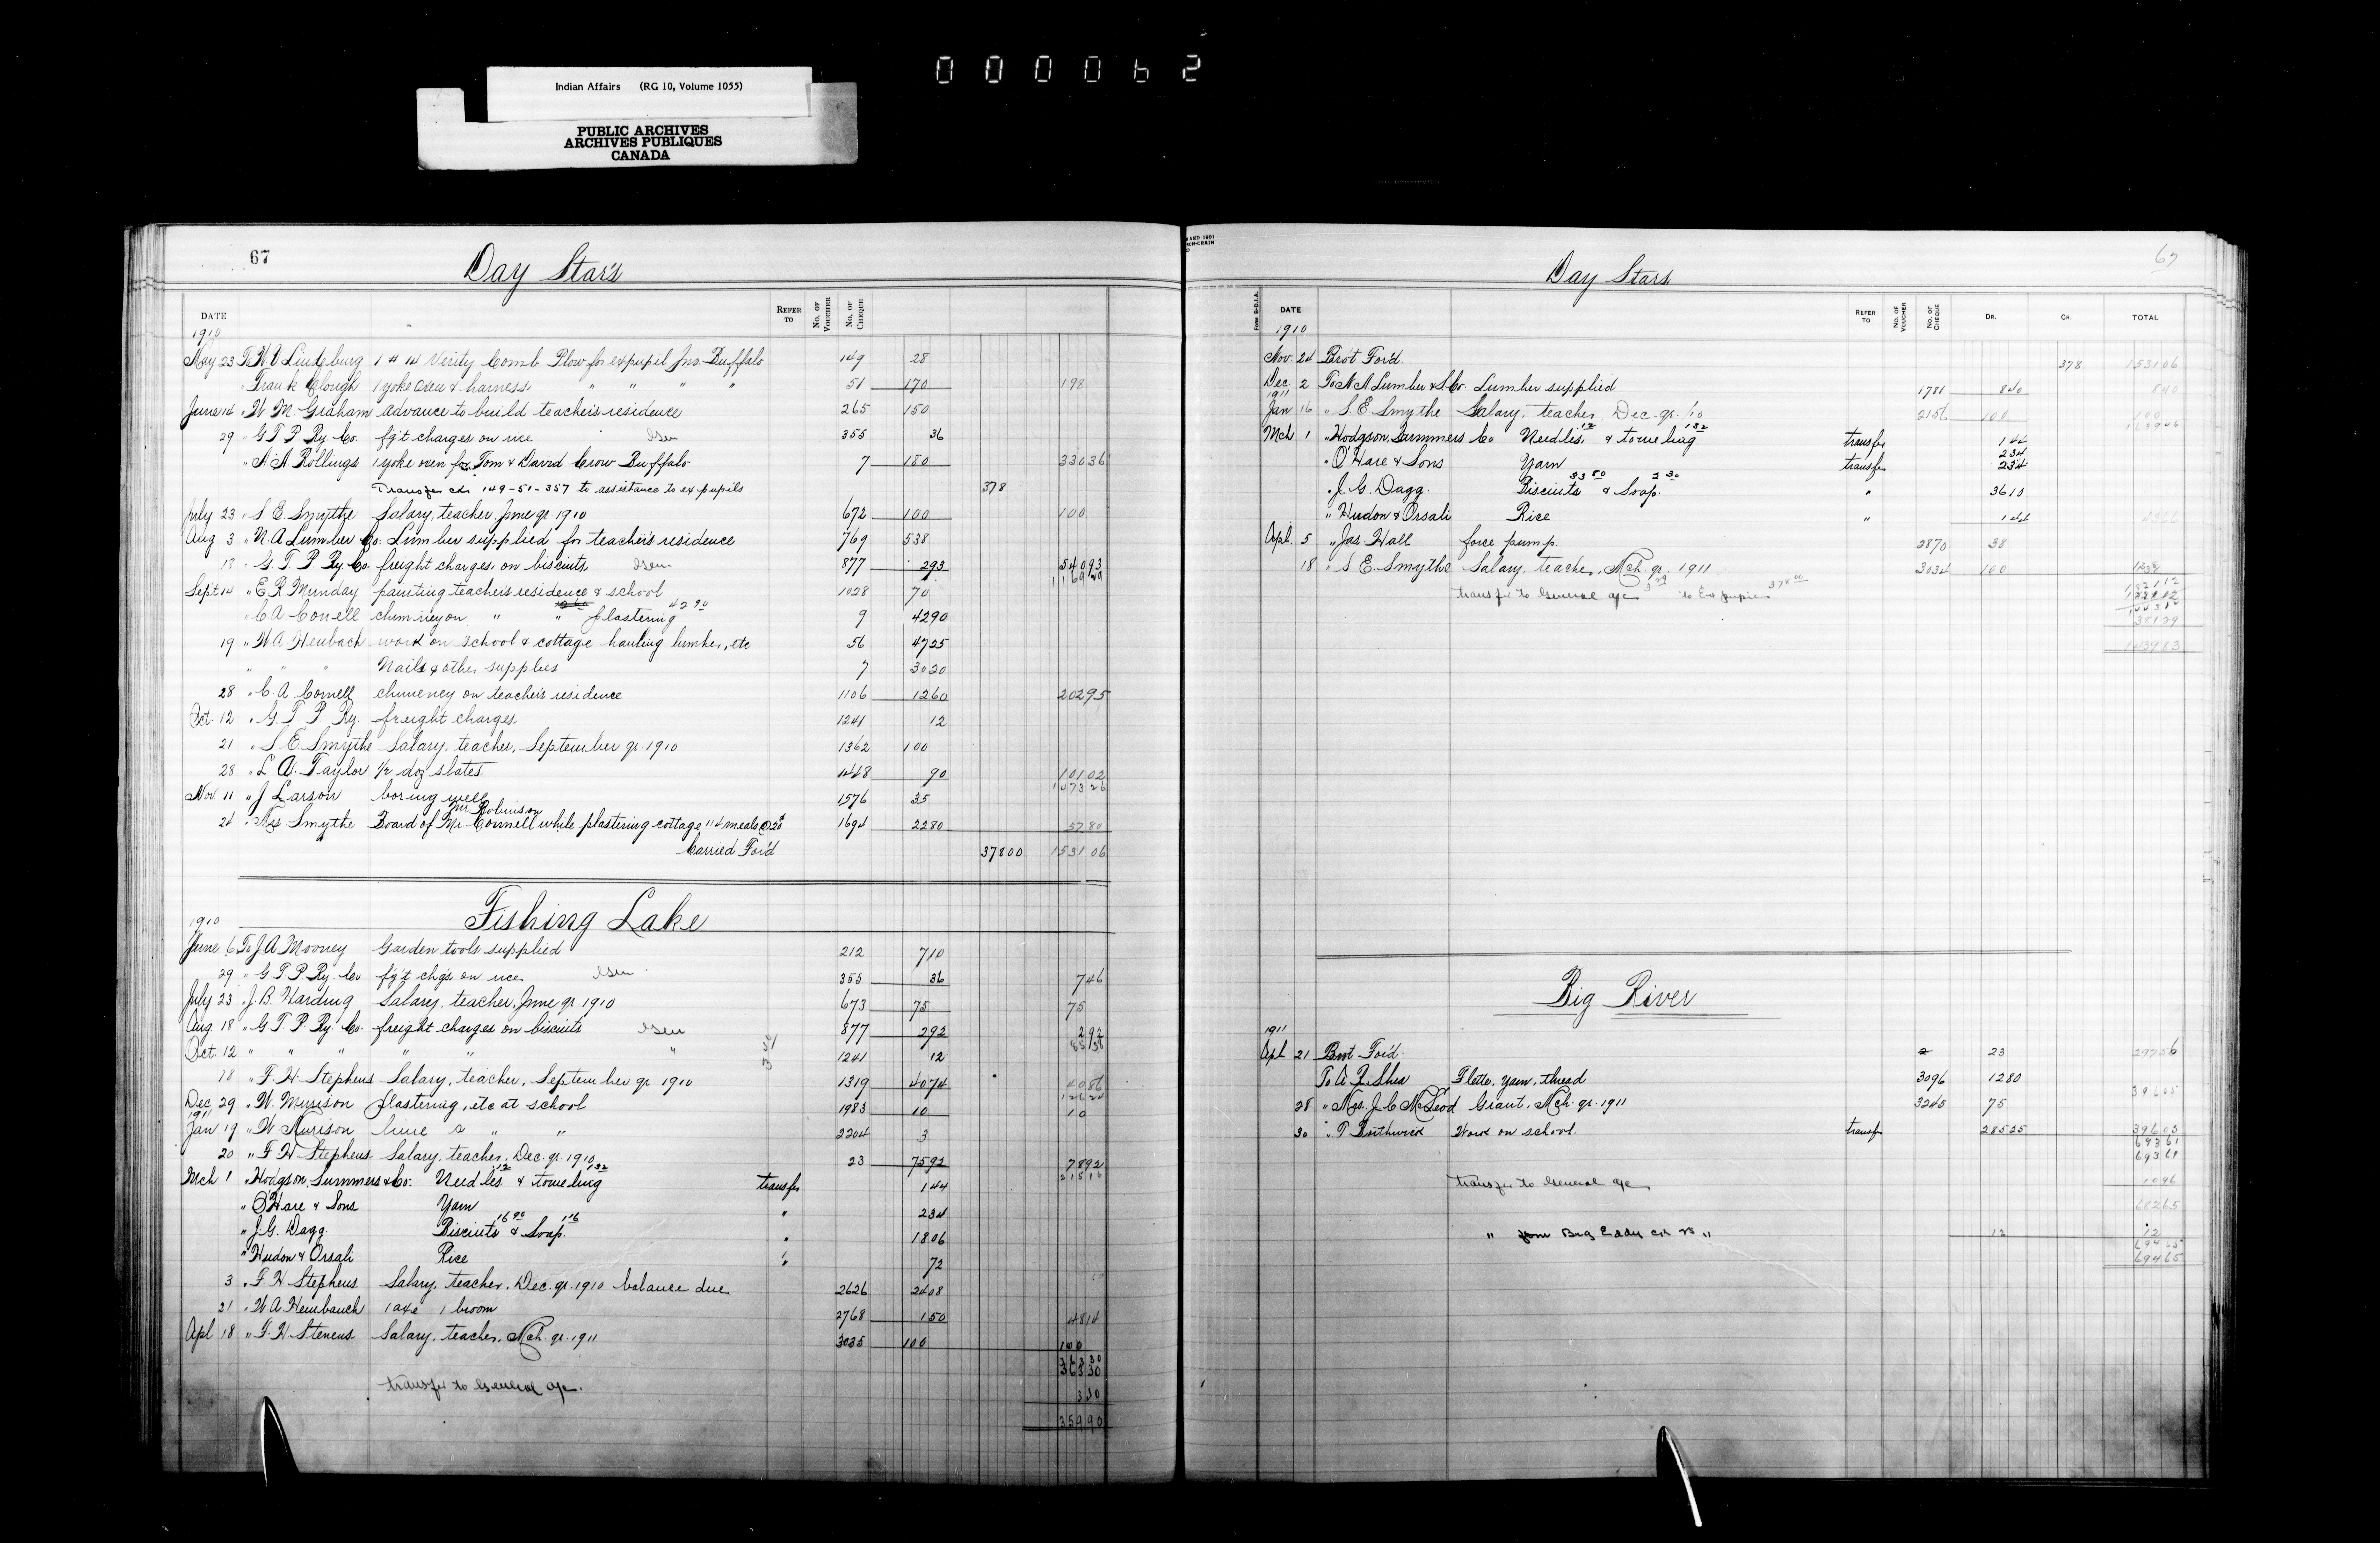 000062
Indian Affairs (RG 10, Volume 1055)
PUBLIC ARCHIVES
ARCHIVES PUBLIQUES
CANADA
67
Day Star's
DATE REFER TO No. OF VOUCHER No. OF CHEQUE
1910
May 23 To W. V. Lindeburg 1 # 14 Verity Comb Plow for expupil Jno. Buffalo 149 28
" Frank Clough 1 yoke oxen & harness " " " " 51 170 198
June 14 " W. M. Graham advance to build teacher's residence 265 150
29 " G T P Ry. Co. fg't charges on rice Gen 355 36
" A. A Rollings 1 yoke oxen for Tom & David Crow Buffalo 7 180 33036
Transfer ck 149-51-357 to assistance to ex pupils 378
July 23 " S. E. Smythe Salary, teacher, June qr 1910 672 100 100
Aug 3 " N. A Lumber Co. Lumber supplied for teacher's residence 769 538
18 " G. T. P. Ry. Co. freight charges on biscuits Gen 877 293 54093
116929
Sept 14 " E. R. Munday painting teacher's residence & school 1028 70
" C. A. Cornell chimney on " " plastering 42 90 9 4290
19 " W. A Heubach work on school & cottage hauling lumber, etc 56 4725
" " " Nails & other supplies 7 3020
28 " C. A. Cornell chimney on teacher's residence 1106 1260 20295
Oct 12 " G. T. P. Ry. freight charges 1241 12
21 " S. E. Smythe Salary, teacher, September qr. 1910 1362 100
28 " L. A. Taylor 1/2 doz slates 1448 90 10102
147326
Nov 11 " J Larson boring well 1576 35
Mr Robinson
24 " Mrs Smythe Board of Mr Cornell while plastering cottage 114 meals @ 20¢ 1694 2280 5780
Carried For'd 37800 153106
Fishing Lake
1910
June 6 To J. A Mooney Garden tools supplied 212 710
29 " G T P. Ry. Co fg't chgs on rice Gen 355 36 746
July 23 " J. B. Harding Salary, teacher, June qr. 1910 673 75 75
Aug 18 " G. T. P. Ry. Co. freight charges on biscuits Gen 877 292 292
8538
Oct 12 " " " " " " 1241 12
18 " F. H. Stephens Salary, teacher, September qr. 1910 1319 4074 4086
12624
Dec 29 " W. Murison plastering, etc at school 1983 10 10
1911
Jan 19 " W Murison lime " " 2204 3
20 " F H Stephens Salary, teacher, Dec. qr. 1910 23 7592 7892
21516
Mch 1 " Hodgson Summers & Co. Needles 12 & toweling 132 transfer 144
" O'Hare & Sons Yarn " 234
" J. G. Dagg Biscuits 16 90 & Soap 1 16 " 1806
" Hudon & Orsali Rice " 72
3 " F. H Stephens Salary, teacher, Dec. qr. 1910 balance due 2626 2408
21 " W. A. Heubauch 1 axe 1 broom 2768 150 4814
Apl 18 " F. H Stevens Salary, teacher, Mch. qr. 1911 3035 100 100
36330
36330
transfer to General a/c. 330
35990
Day Stars
67
Form B-D.I.A. DATE REFER TO No. OF VOUCHER No. OF CHEQUE DR. CR. TOTAL
1910
Nov. 24 Bro't For'd. 378 153106
Dec 2 To N A Lumber & S. Co. Lumber supplied 1781 840 840
1911
Jan 16 " S E Smythe Salary, teacher Dec. qr. '10 2156 100 100
163946
Mch 1 " Hodgson Summers Co Needles 12 & toweling 132 transfer 144
" O'Hare & Sons Yarn transfer 234
" J. G. Dagg. Biscuits 33 80 & Soap 2 30 " 3610
" Hudon & Orsali Rice " 144
Apl. 5 " Jas. Hall force pump. 2870 38
18 " S E. Smythe Salary, teacher, Mch. qr. 1911 3034 100 138
182112
transfer to General a/c to Ex pupils 378 00
38129
143983
Big River
1911
Apl 21 Brot For'd. 23 29726
To A. R. Shea Flette, yarn, thread 3096 1280
28 " Mrs. J. C McLeod Grant, Mch. qr. 1911 3245 75
30 " T Borthwick Work on school. transfer 28525 39605
69361
69361
transfer to General a/c 1096
68265
" from Big Eddy ck 25 " 12 12
69465